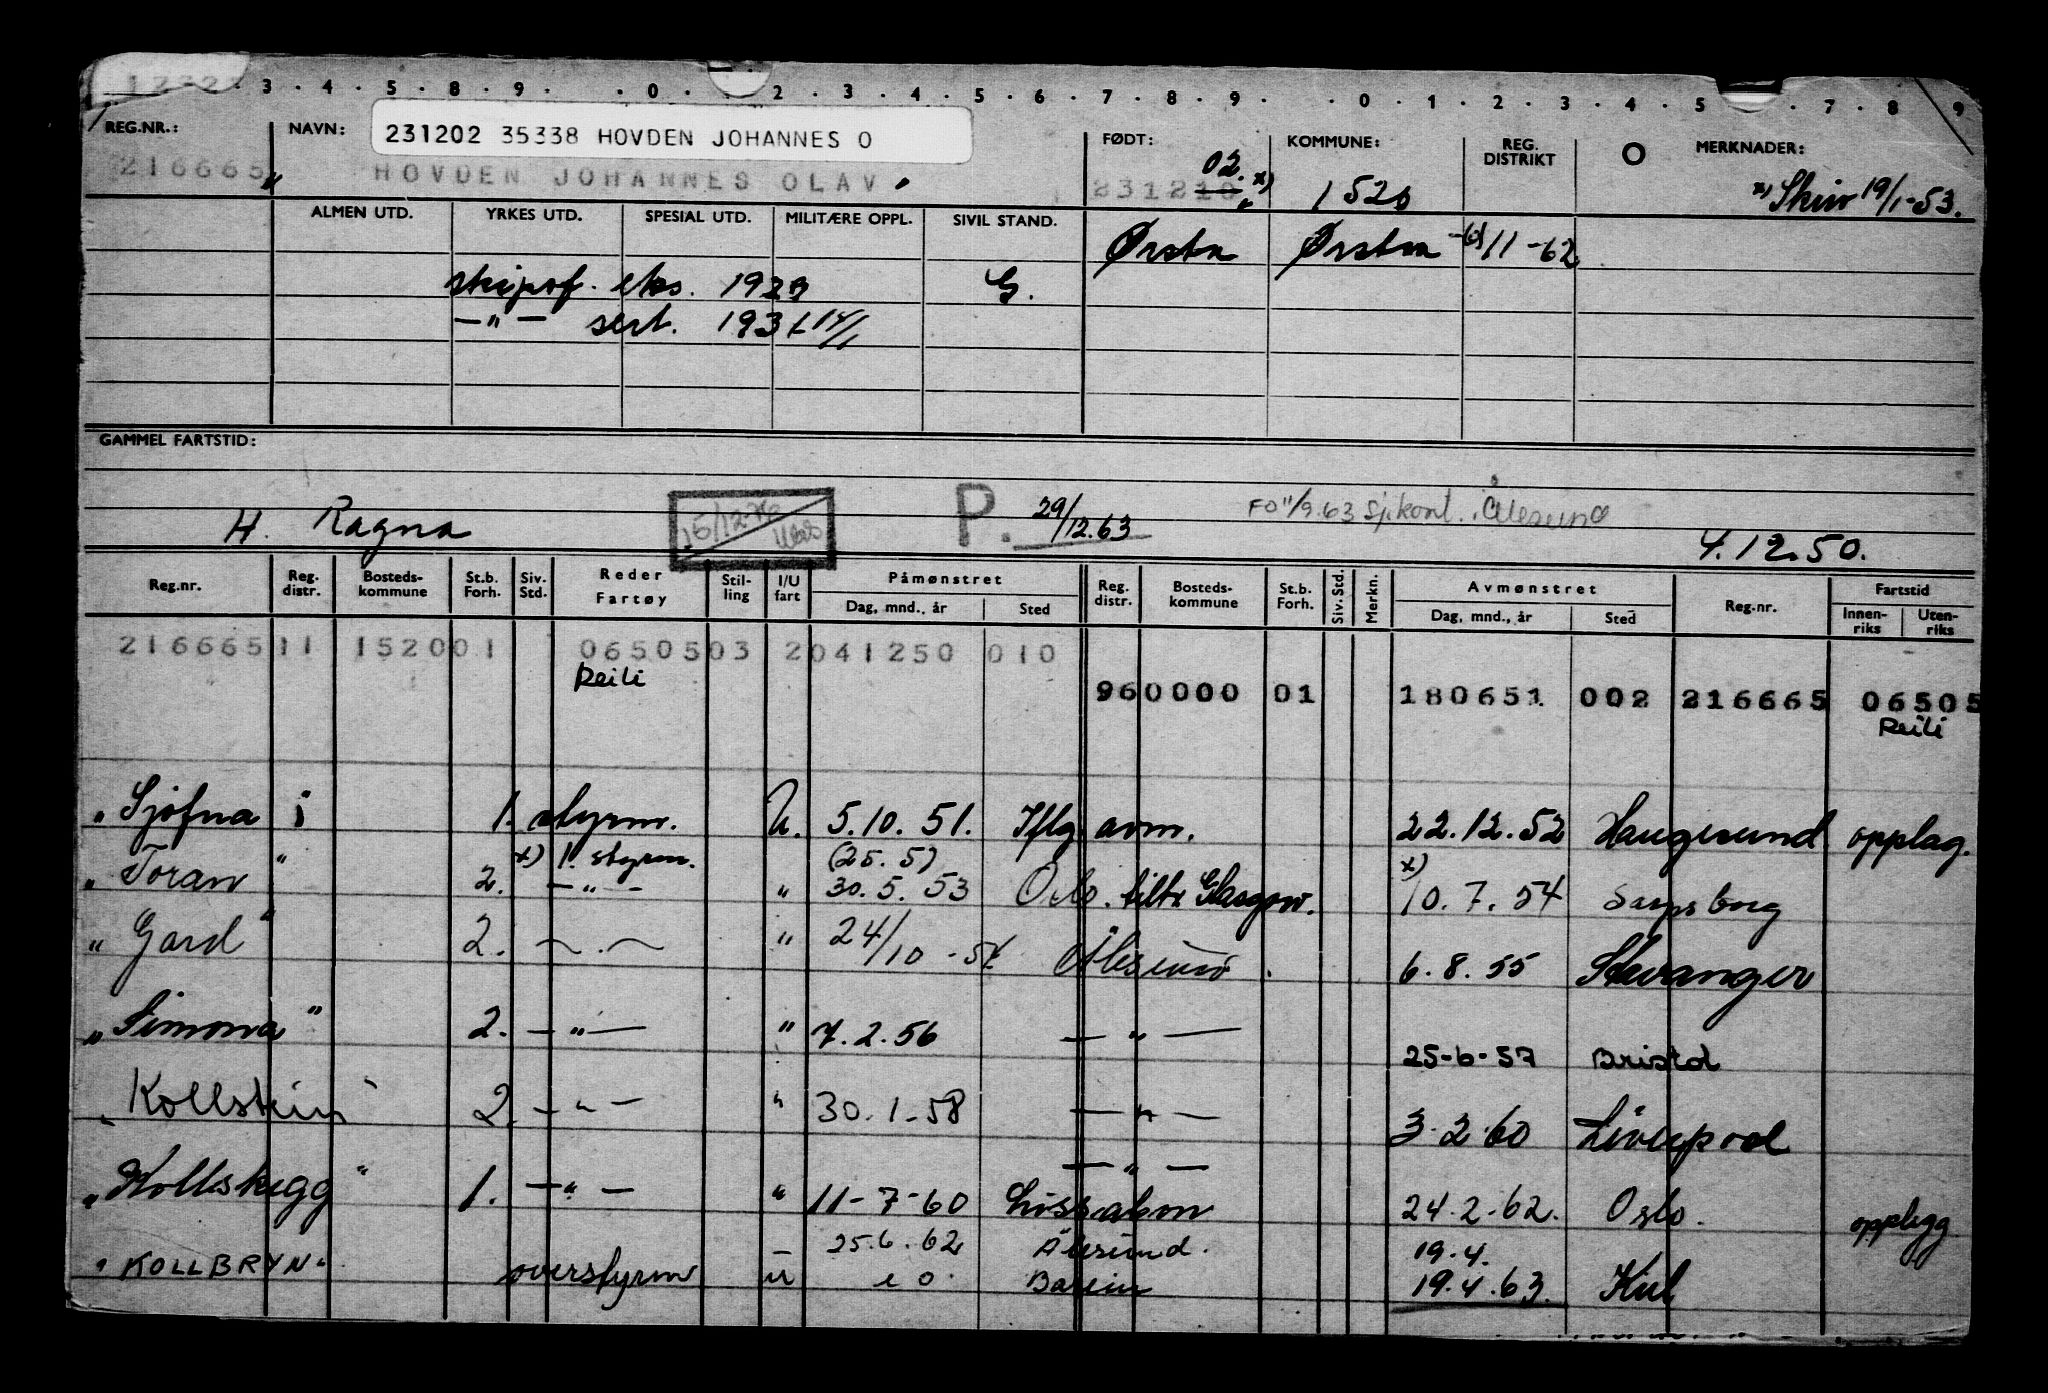 3 . 4 . 5 . 8 . 9 . . 0 . . 2 . 3 . 4 . 5 . 6 . 7 . 8 . 9 . . 0 . 1 . 2 . 3 . 4 . 5 . 7 . 8 . 9
REG.NR.: NAVN: 231202 35338 HOVDEN JOHANNES O FØDT: KOMMUNE: REG. DISTRIKT O MERKNADER:
216665 HOVDEN JOHANNES OLAV 231210 02. x) 1520 x) Skiv 19/1-53.
ALMEN UTD. YRKES UTD. SPESIAL UTD. MILITÆRE OPPL. SIVIL STAND. Ørsta Ørsta 11-62
skipsf. eks. 1923 G.
—"— sert. 1931
GAMMEL FARTSTID:
H. Ragna 15/12-76 P. 29/12.63 FO 11/9.63 Sjikont. i Ålesund 4.12.50.
Reg.nr. Reg. distr. Bosteds-kommune St.b. Forh. Siv. Std. Reder Fartøy Stil-ling I/U fart Påmønstret Dag, mnd., år Sted Reg. distr. Bosteds-kommune St.b. Forh. Siv. Std. Merkn. Avmønstret Dag, mnd., år Sted Reg.nr. Fartstid Innen-riks Uten-riks
216665 11 1520 01 06505 03 2 041250 010
Reili
960000 01 180651 002 216665 06505
Reili
" Sjofna i 1. styrm. U. 5.10.51. Iflg. avm. 22.12.52 Haugesund opplag.
x) 1. styrm. (25.5) x)
" Toran " 2. —"— " 30.5.53 Oslo. tiltr Glasgow. 10.7.54 Sarpsborg
" Gard " 2. —.— " 24/10-54 Ålesund. 6.8.55 Stavanger
" Simona " 2. —"— " 7.2.56 —"— 25-6-57 Bristol
" Kollstein " 2. —"— " 30.1.58 —"— 3.2.60 Liverpool
—"—
" Kollskegg " 1. —"— " 11-7-60 Lissabon 24.2.62. Oslo. opplegg
25.6.62 Ålesund. 19.4.
" KOLLBRYN " overstyrm u Barein 19.4.63. Kiel